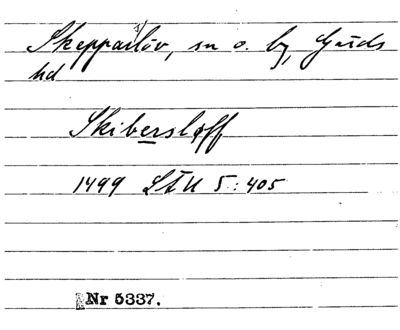 Skepparslöv, sn o. by, Gärds
hd
Skibersløff
1499 LÄU 5:405
Nr 5337.